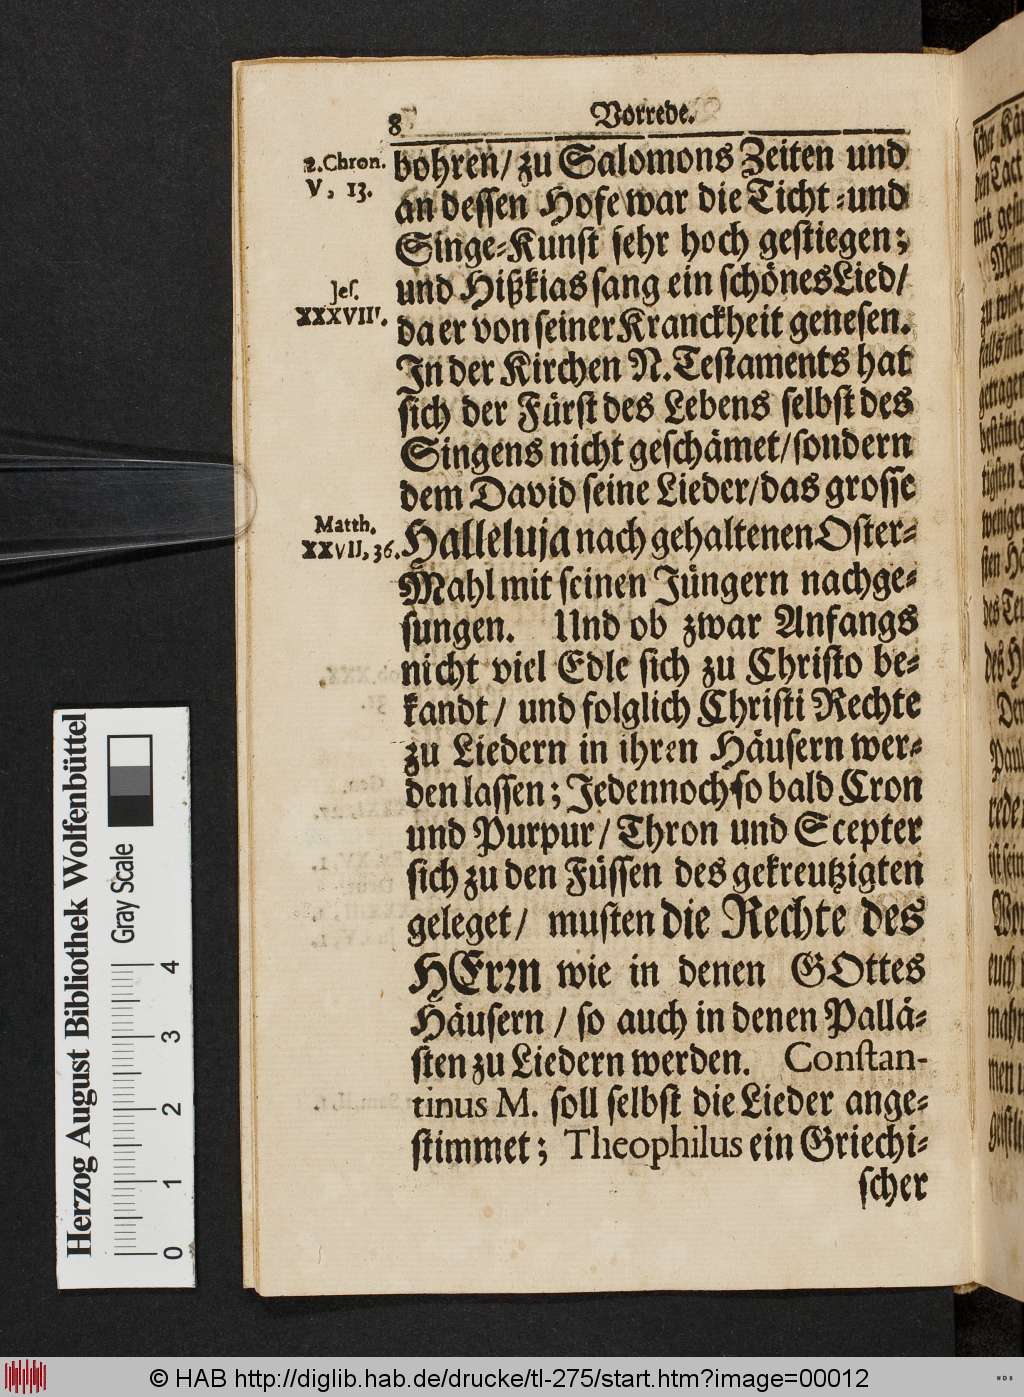 8 Vorrede.
2.Chron.
V, 13.
bohren/ zu Salomons Zeiten und
an dessen Hofe war die Ticht-und
Singe-Kunst sehr hoch gestiegen;
Jes.
XXXVIII.
und Hißkias sang ein schönes Lied/
da er von seiner Kranckheit genesen.
In der Kirchen N. Testaments hat
sich der Fürst des Lebens selbst des
Singens nicht geschämet/ sondern
dem David seine Lieder/ das grosse
Matth.
XXVII, 36.
Halleluja nach gehaltenen Oster-
Mahl mit seinen Jüngern nachge-
sungen. Und ob zwar Anfangs
nicht viel Edle sich zu Christo be-
kandt/ und folglich Christi Rechte
zu Liedern in ihren Häusern wer-
den lassen; Jedennoch so bald Cron
und Purpur/ Thron und Scepter
sich zu den Füssen des gekreutzigten
geleget/ musten die Rechte des
HErrn wie in denen GOttes
Häusern / so auch in denen Pallä-
sten zu Liedern werden. Constan-
tinus M. soll selbst die Lieder ange-
stimmet; Theophilus ein Griechi-
scher
Herzog August Bibliothek Wolfenbüttel
Gray Scale
0 1 2 3 4
© HAB http://diglib.hab.de/drucke/tl-275/start.htm?image=00012